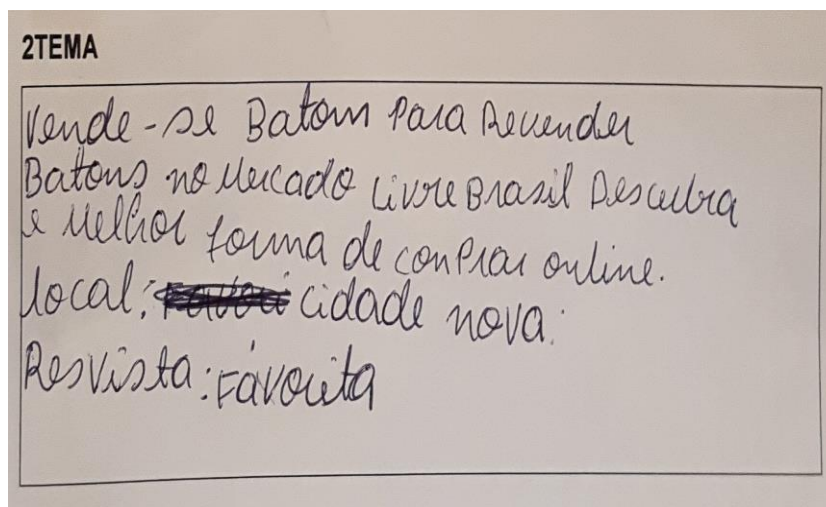 2TEMA
Vende-se Batom Para Revender
Batons no Mercado Livre Brasil Descubra
e Melhor forma de conPrar online.
Local: cidade nova:
Resvista: Fávorita